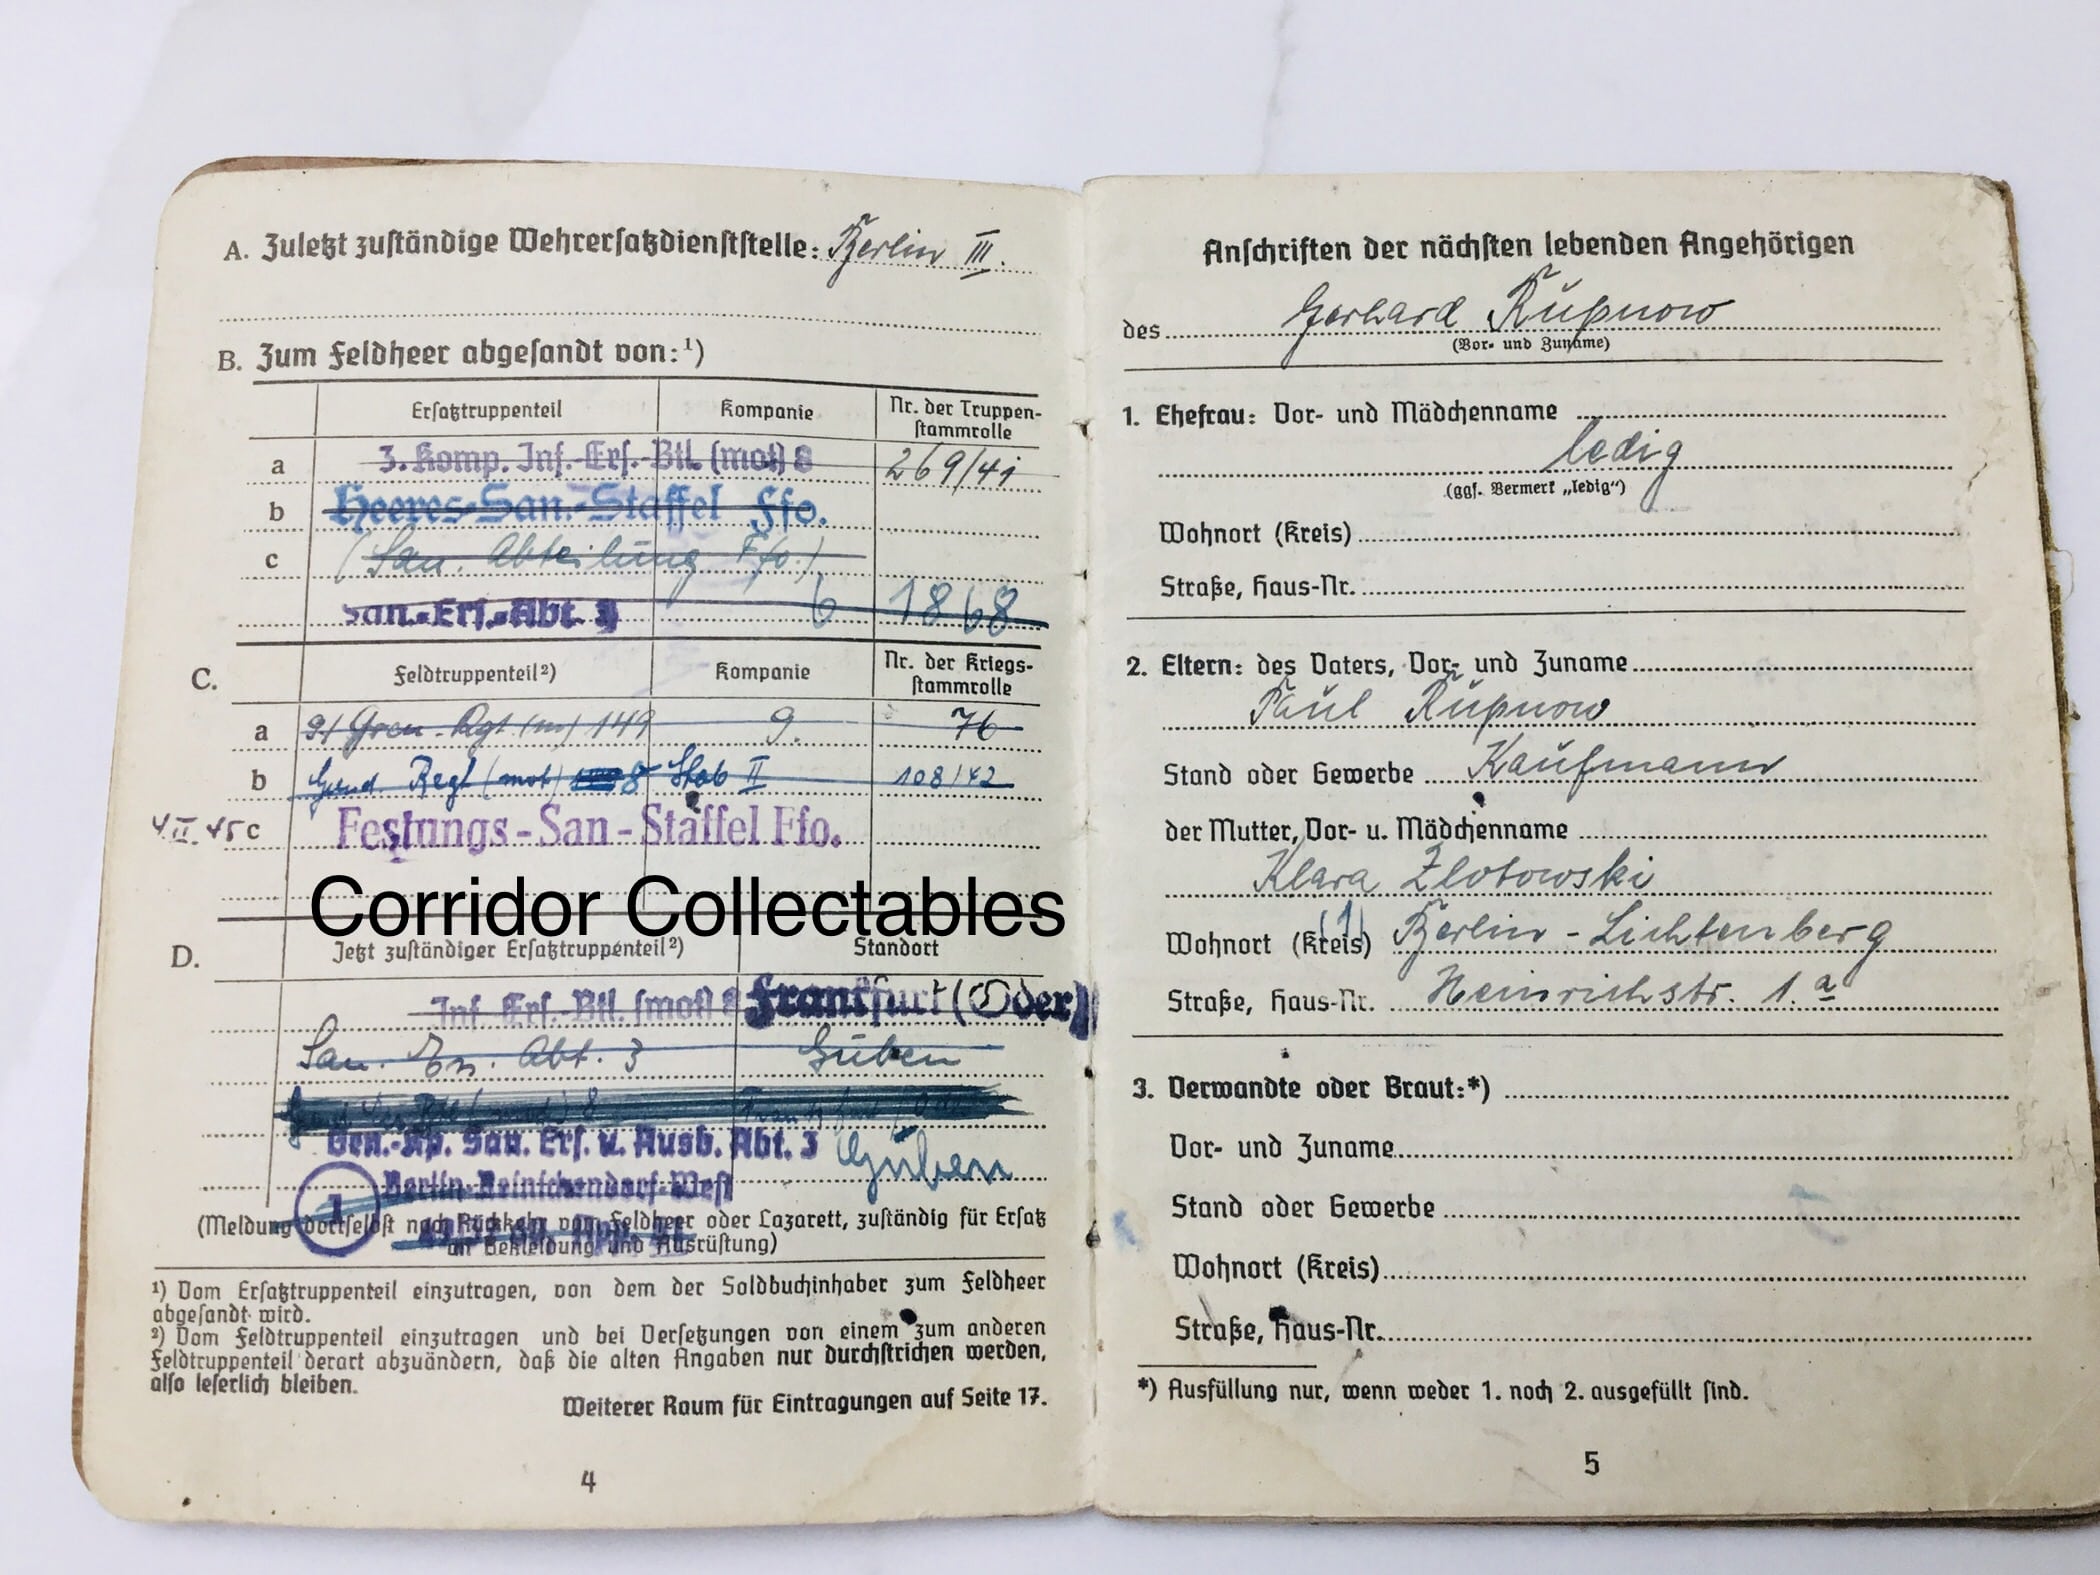 A. Zuletzt zuständige Wehrersatzdienststelle: Berlin III.
B. Zum Feldheer abgesandt von:¹)
Ersatztruppenteil Kompanie Nr. der Truppen-
stammrolle
a 3. Komp. Inf.-Ers.-Btl. (mot) 8 269/41
b Heeres-San.-Staffel Ffo.
c (San. Abteilung Ffo.)
San.-Ers.-Abt. 3 6 1868
C. Feldtruppenteil²) Kompanie Nr. der Kriegs-
stammrolle
a 9/ Gren. Rgt (m) 149 9. 76
b Regt (mot) 8 Stab II 108/42
4.II.45 c Festungs-San-Staffel Ffo.
Corridor Collectables
D. Jetzt zuständiger Ersatztruppenteil²) Standort
Inf. Ers.-Btl. (mot) 8 Frankfurt (Oder)
San. Abt. 3 Guben
Gen.-Kp. San. Ers. u. Ausb. Abt. 3 Guben
1 Berlin-Reinickendorf-West
(Meldung dortselbst nach Rückkehr vom Feldheer oder Lazarett, zuständig für Ersatz
an Bekleidung und Ausrüstung)
¹) Vom Ersatztruppenteil einzutragen, von dem der Soldbuchinhaber zum Feldheer
abgesandt wird.
²) Vom Feldtruppenteil einzutragen und bei Versetzungen von einem zum anderen
Feldtruppenteil derart abzuändern, daß die alten Angaben nur durchstrichen werden,
also leserlich bleiben.
Weiterer Raum für Eintragungen auf Seite 17.
4
Anschriften der nächsten lebenden Angehörigen
des Gerhard Rupnow
(Vor- und Zuname)
1. Ehefrau: Vor- und Mädchenname
ledig
(ggf. Vermerk „ledig“)
Wohnort (Kreis)
Straße, Haus-Nr.
2. Eltern: des Vaters, Vor- und Zuname
Paul Rupnow
Stand oder Gewerbe Kaufmann
der Mutter, Vor- u. Mädchenname
Klara Zlotowski
(1)
Wohnort (Kreis) Berlin - Lichtenberg
Straße, Haus-Nr. Heinrichstr. 1.a
3. Verwandte oder Braut:*)
Vor- und Zuname
Stand oder Gewerbe
Wohnort (Kreis)
Straße, Haus-Nr.
*) Ausfüllung nur, wenn weder 1. noch 2. ausgefüllt sind.
5